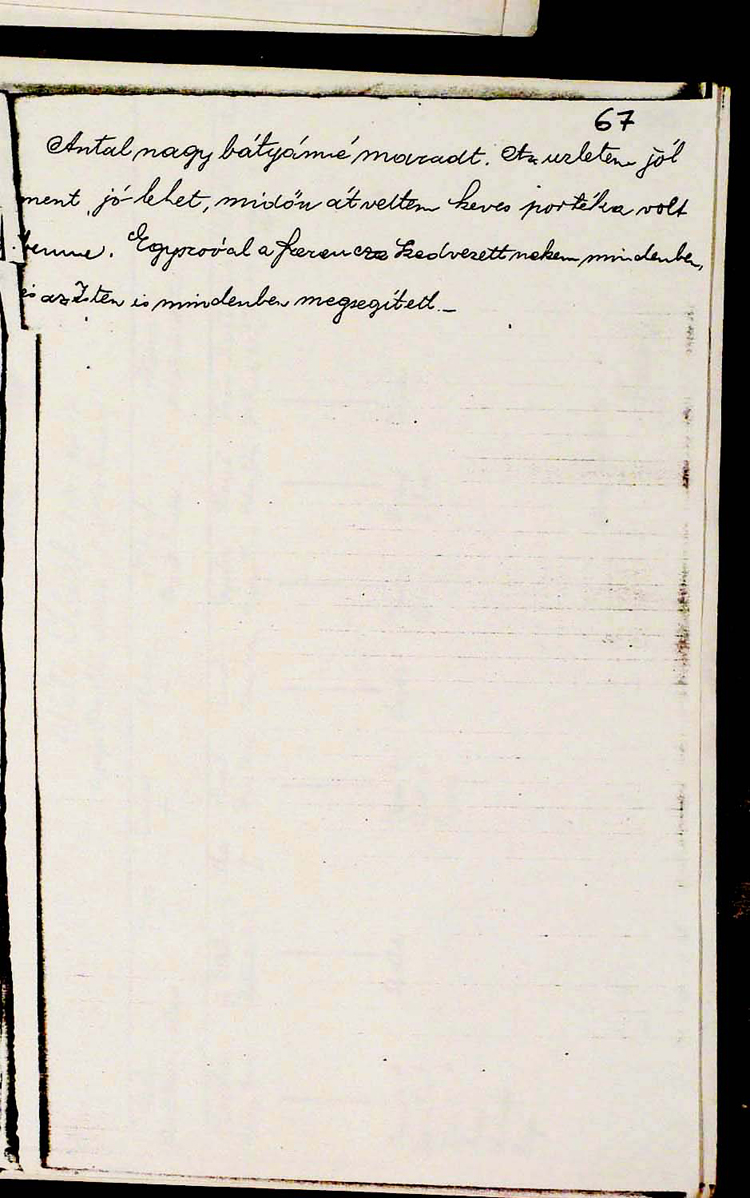 67
Antal nagy bátyámé maradt. Az uzletem jól
ment, jó-lehet, midőn átvettem keves portéka volt
benne. Egyszóval a szerencse kedvezett nekem mindenben,
és az Isten is mindenben megsegített._